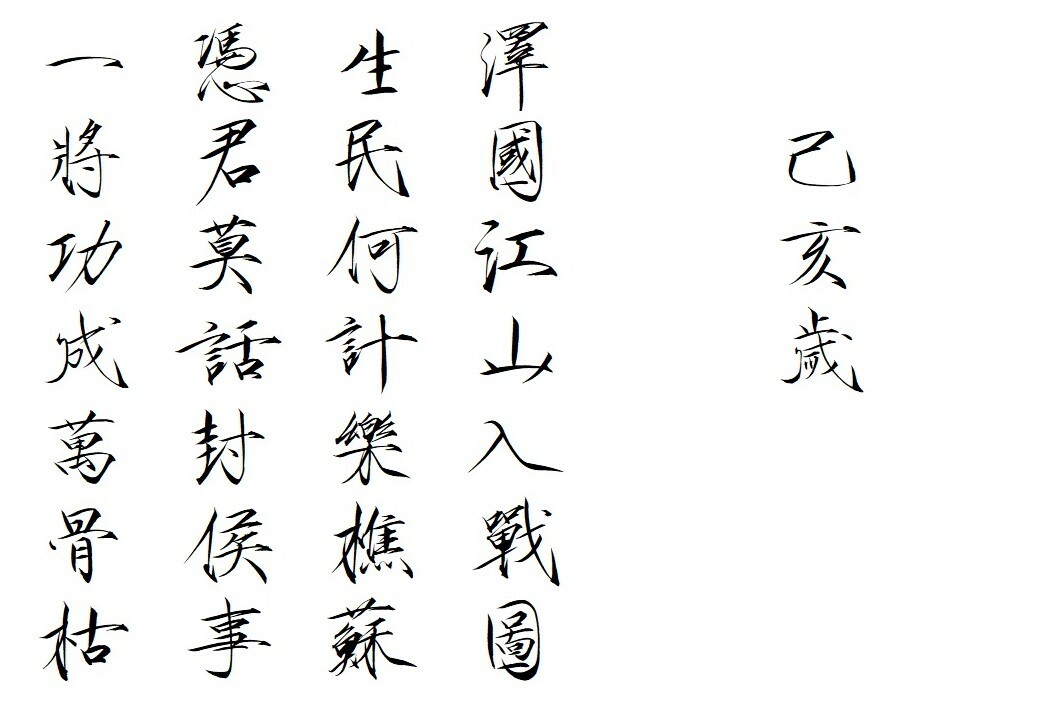 己亥歲
澤國江山入戰圖
生民何計樂樵蘇
憑君莫話封侯事
一將功成萬骨枯